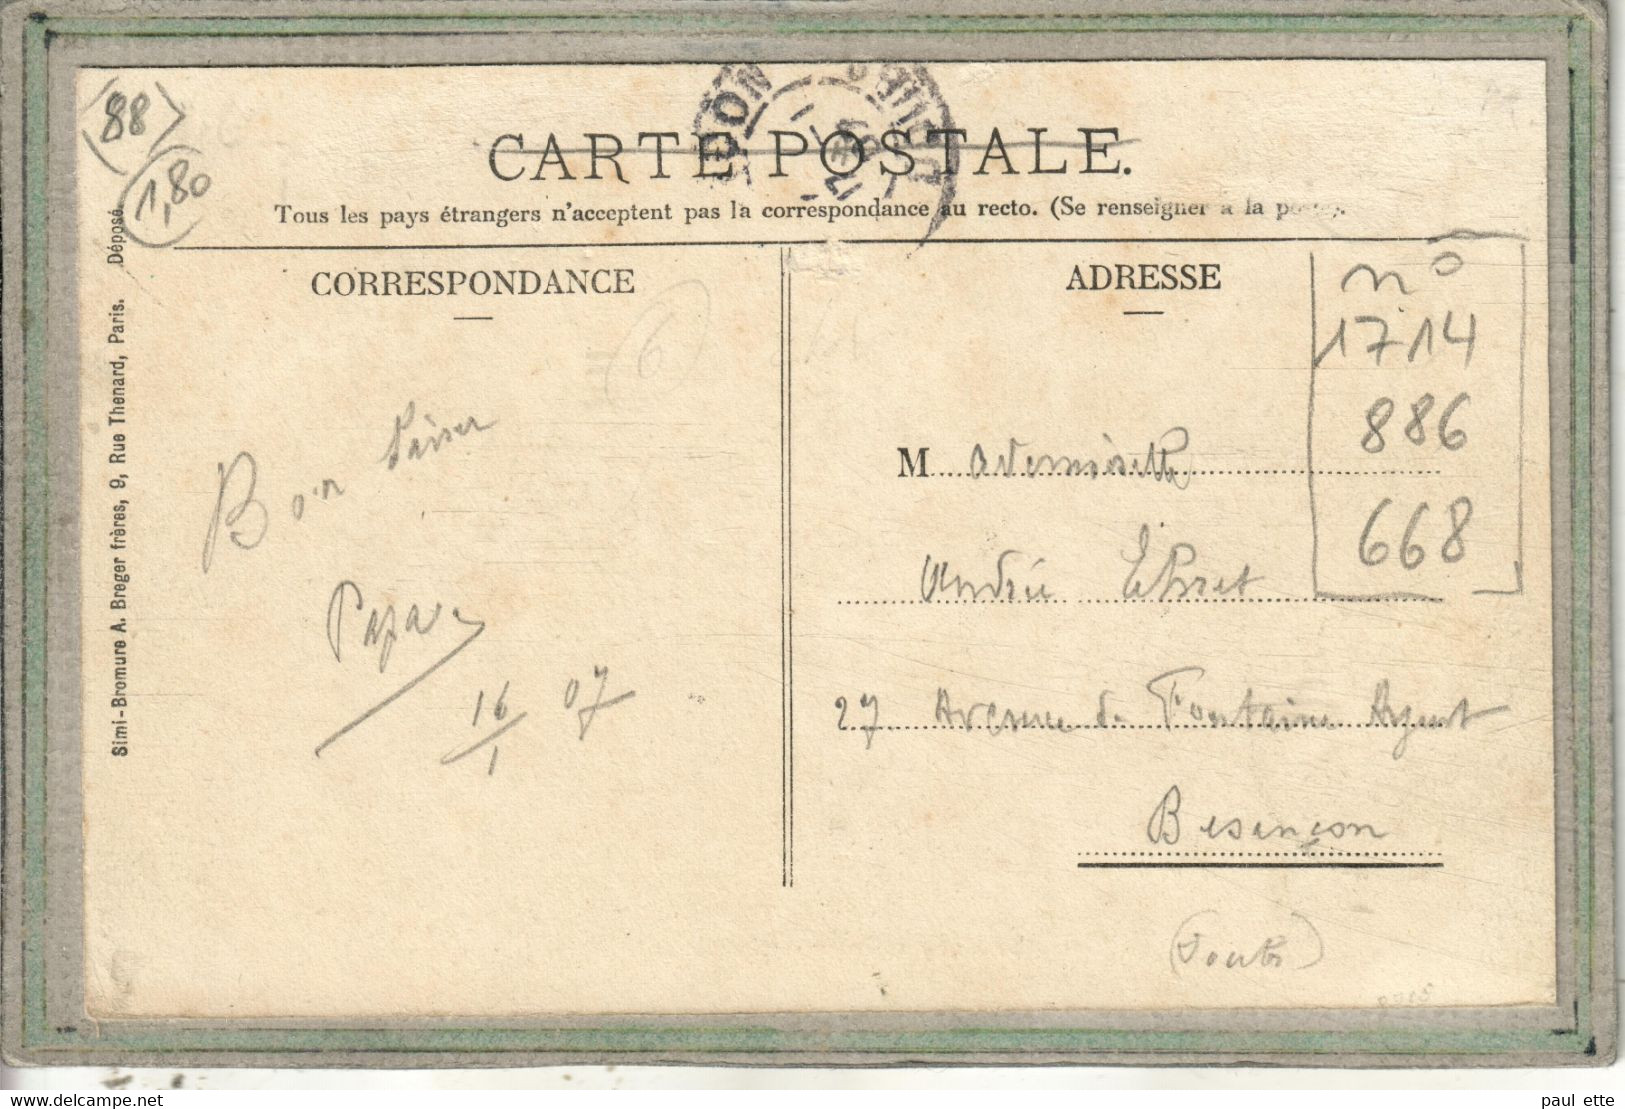 88
1,80
CARTE POSTALE.
Tous les pays étrangers n'acceptent pas la correspondance au recto. (Se renseigner à la poste).
CORRESPONDANCE
Bon baiser
Papa
16/1 07
Simi-Bromure A. Breger frères, 9, Rue Thenard, Paris. Déposé.
ADRESSE
no
1714
886
668
Mademoiselle
Andrée Ehret
27 Avenue de Fontaine Argent
Besançon
(Doubs)
6
delcampe.net
paul ette